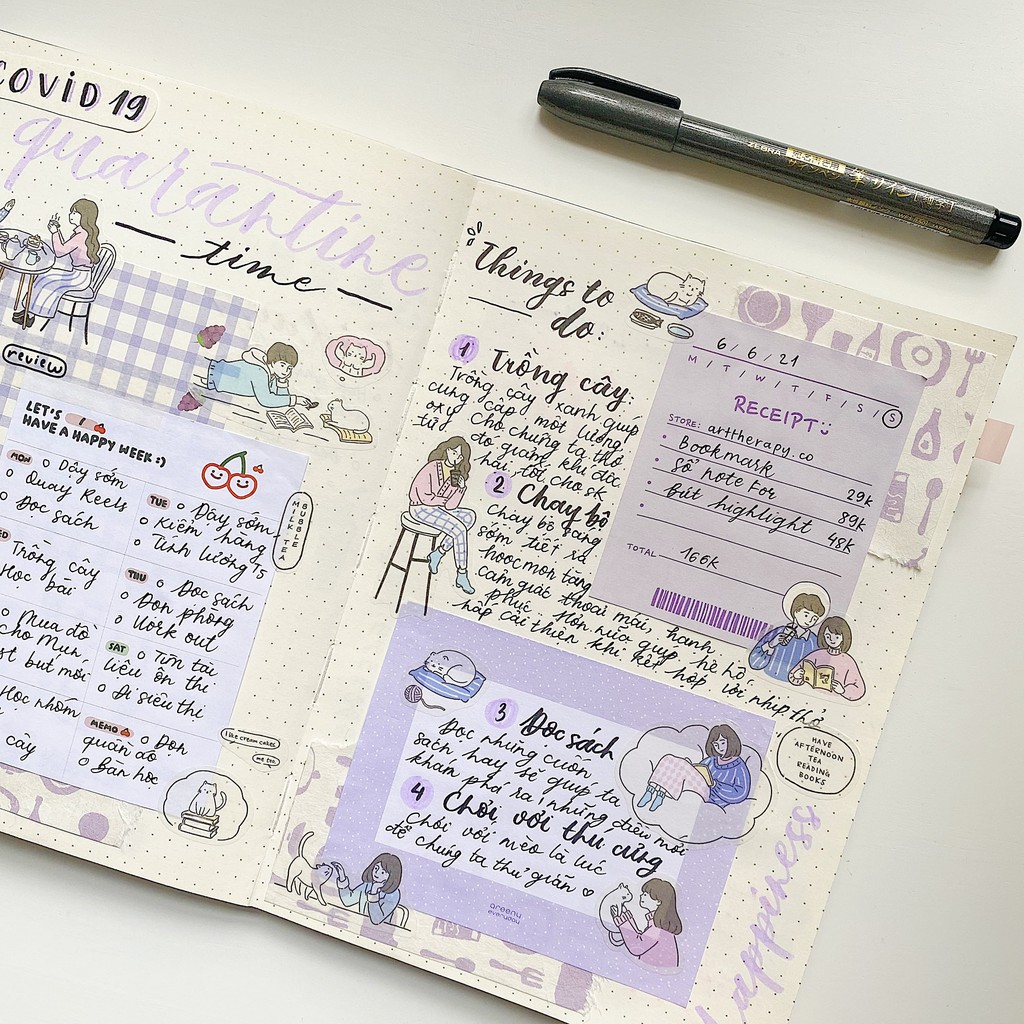 COVID 19
quarantine
time
review
LET'S
HAVE A HAPPY WEEK :)
MON
Dậy sớm
Quay Reels
Đọc sách
TUE
Dậy sớm
Kiểm hàng
Tính lương T5
Trồng cây
Học bài
THU
Đọc sách
Dọn phòng
Work out
Mua đồ
cho Mun
bút mới
SAT
Tìm tài
liệu ôn thi
Đi siêu thị
Học nhóm
cây
MEMO
Dọn
quần áo
Bàn học
BUBBLE
MILK TEA
i like cream cakes
me too
Things to
do:
1 Trồng cây:
Trồng cây xanh giúp
cung cấp một lượng
oxy cho chúng ta thở
từ đó giảm khí độc
hại, tốt cho sk
2 Chạy bộ
Chạy bộ sáng
sớm tiết ra
hoocmon tăng
cảm giác thoải mái, hạnh
phúc. Hơn nữa giúp hệ hô
hấp cải thiện khi kết hợp với nhịp thở
6/6/21
M/T/W/T/F/S/S
RECEIPT
STORE: arttherapy.co
Bookmark 29k
Sổ note For 89k
Bút highlight 48k
TOTAL 166k
3 Đọc sách
Đọc những cuốn
sách hay sẽ giúp ta
khám phá ra những điều mới
4 Chơi với thú cưng
Chơi với mèo là lúc
để chúng ta thư giãn
greeny
everyday
HAVE
AFTERNOON
TEA
READING
BOOKS
happiness
ZEBRA
筆サイン